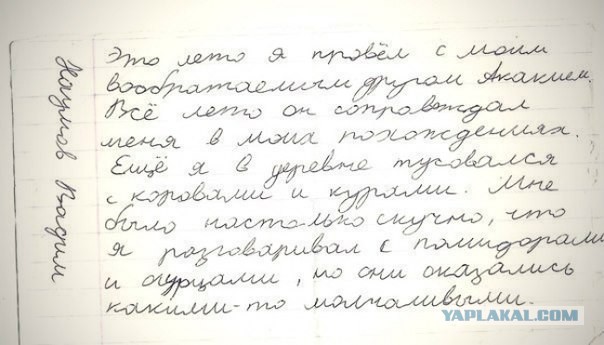 Наумов Вадим
Это лето я провёл с моим
воображаемым другом Акакием.
Всё лето он сопровождал
меня в моих похождениях.
Ещё я в деревне тусовался
с коровами и курями. Мне
было настолько скучно, что
я разговаривал с помидорами
и огурцами, но они оказались
какими-то молчаливыми.
YAPLAKAL.COM